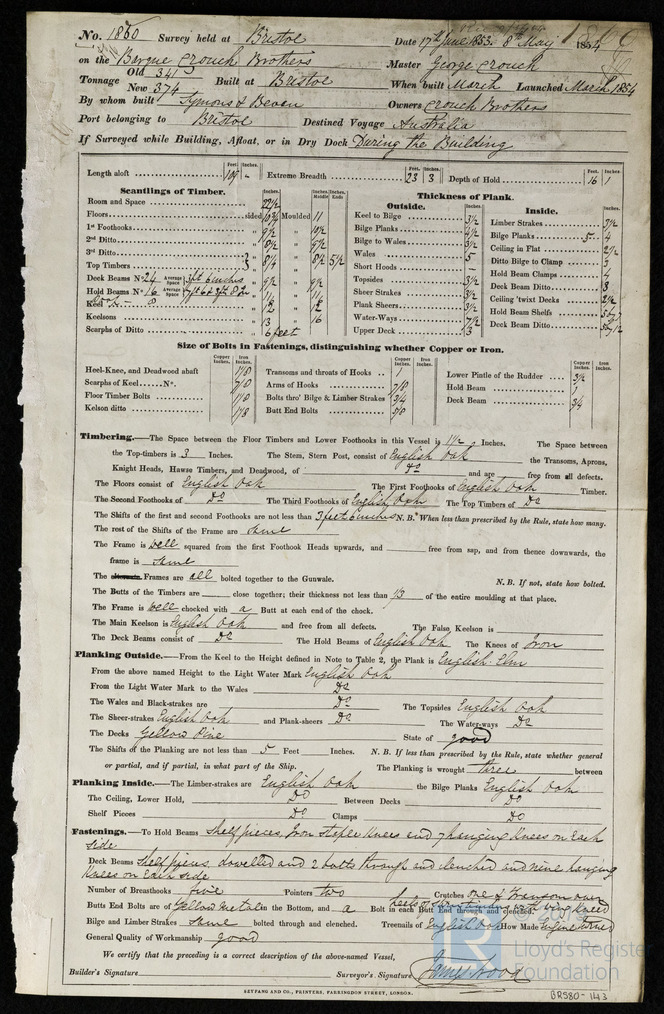 No. 1860 Survey held at Bristol Date 17th June 1853. 8th May 1854
on the Barque Crouch Brothers Master George Crouch
Tonnage Old 341 New 374 Built at Bristol When built March Launched March 1854
By whom built Symons & Owners Crouch Brothers
Port belonging to Bristol Destined Voyage Australia
If Surveyed while Building, Afloat, or in Dry Dock During the Building
Length aloft 109 Feet. Inches. Extreme Breadth 23 3 Feet. Inches. Depth of Hold 16 1 Feet. Inches.
Scantlings of Timber. Thickness of Plank.
Outside. Inside.
Room and Space 22 1/2 Keel to Bilge 3 1/2 Limber Strakes 3 1/2
Floors sided Moulded 11 Bilge Planks 4 1/2 Bilge Planks 5 4
1st Foothooks 9 1/2 10 1/2 Bilge to Wales 3 1/2 Ceiling in Flat 2 1/2
2nd Ditto 8 1/2 9 1/2 Wales 5 Ditto Bilge to Clamp 3
3rd Ditto Short Hoods — Hold Beam Clamps 4
Top Timbers 8 1/2 5 1/2 Topsides 3 1/2 Deck Beam Ditto 3
Deck Beams No. 24 Average Space 3 ft 6 inches 9 1/2 9 1/2 Sheer Strakes 3 1/2 Ceiling 'twixt Decks 2 1/2
Hold Beams No. 16 Average Space Plank Sheers 3 1/2 Hold Beam Shelfs
Keel 12 12 Water-Ways 7 1/2 Deck Beam Ditto
Keelsons 13 16 Upper Deck 3
Scarphs of Ditto 6 feet
Size of Bolts in Fastenings, distinguishing whether Copper or Iron.
Copper Inches. Iron Inches. Copper Inches. Iron Inches. Copper Inches. Iron Inches.
Heel-Knee, and Deadwood abaft 1 1/8 Transoms and throats of Hooks Lower Pintle of the Rudder 3 1/2
Scarphs of Keel No. 7/8 Arms of Hooks 7/8 Hold Beam 1
Floor Timber Bolts 1 1/8 Bolts thro' Bilge & Limber Strakes 3/4 Deck Beam 3/4
Kelson ditto 1 1/8 Butt End Bolts 5/8
Timbering.—The Space between the Floor Timbers and Lower Foothooks in this Vessel is 1 1/2 Inches. The Space between
the Top-timbers is 3 Inches. The Stem, Stern Post, consist of English Oak the Transoms, Aprons,
Knight Heads, Hawse Timbers, and Deadwood, of Do and are free from all defects.
The Floors consist of English Oak The First Foothooks of English Oak Timber.
The Second Foothooks of Do The Third Foothooks of English Oak The Top Timbers of Do
The Shifts of the first and second Foothooks are not less than 3 feet 6 inches N. B. When less than prescribed by the Rule, state how many.
The rest of the Shifts of the Frame are same
The Frame is well squared from the first Foothook Heads upwards, and free from sap, and from thence downwards, the
frame is same
The alternate Frames are all bolted together to the Gunwale. N. B. If not, state how bolted.
The Butts of the Timbers are close together; their thickness not less than 1/3 of the entire moulding at that place.
The Frame is well chocked with a Butt at each end of the chock.
The Main Keelson is English Oak and free from all defects. The False Keelson is
The Deck Beams consist of Do The Hold Beams of English Oak The Knees of Iron
Planking Outside.—From the Keel to the Height defined in Note to Table 2, the Plank is English Elm
From the above named Height to the Light Water Mark English Oak
From the Light Water Mark to the Wales Do
The Wales and Black-strakes are Do The Topsides English Oak
The Sheer-strakes English Oak and Plank-sheers Do The Water-ways Do
The Decks Yellow Pine State of good
The Shifts of the Planking are not less than 5 Feet Inches. N. B. If less than prescribed by the Rule, state whether general
or partial, and if partial, in what part of the Ship. The Planking is wrought three between
Planking Inside.—The Limber-strakes are English Oak the Bilge Planks English Oak
The Ceiling, Lower Hold, Do Between Decks Do
Shelf Pieces Do Clamps Do
Fastenings.—To Hold Beams Shelf pieces, Iron Staple Knees and 7 hanging Knees on Each
side
Deck Beams Shelf pieces, dowelled and 2 bolts through and clenched and nine hanging
Knees on Each side
Number of Breasthooks five Pointers two Crutches one & Transom over
heels of
Butts End Bolts are of Yellow Metal in the Bottom, and a Bolt in each Butt End through and clenched.
Bilge and Limber Strakes Same bolted through and clenched. Treenails of English Oak How Made Engine turned
General Quality of Workmanship good
We certify that the preceding is a correct description of the above-named Vessel,
Builder's Signature Surveyor's Signature James Hood
SEYFANG AND CO., PRINTERS, FARRINGDON STREET, LONDON.
BRS80-143
Lloyd's Register
Foundation